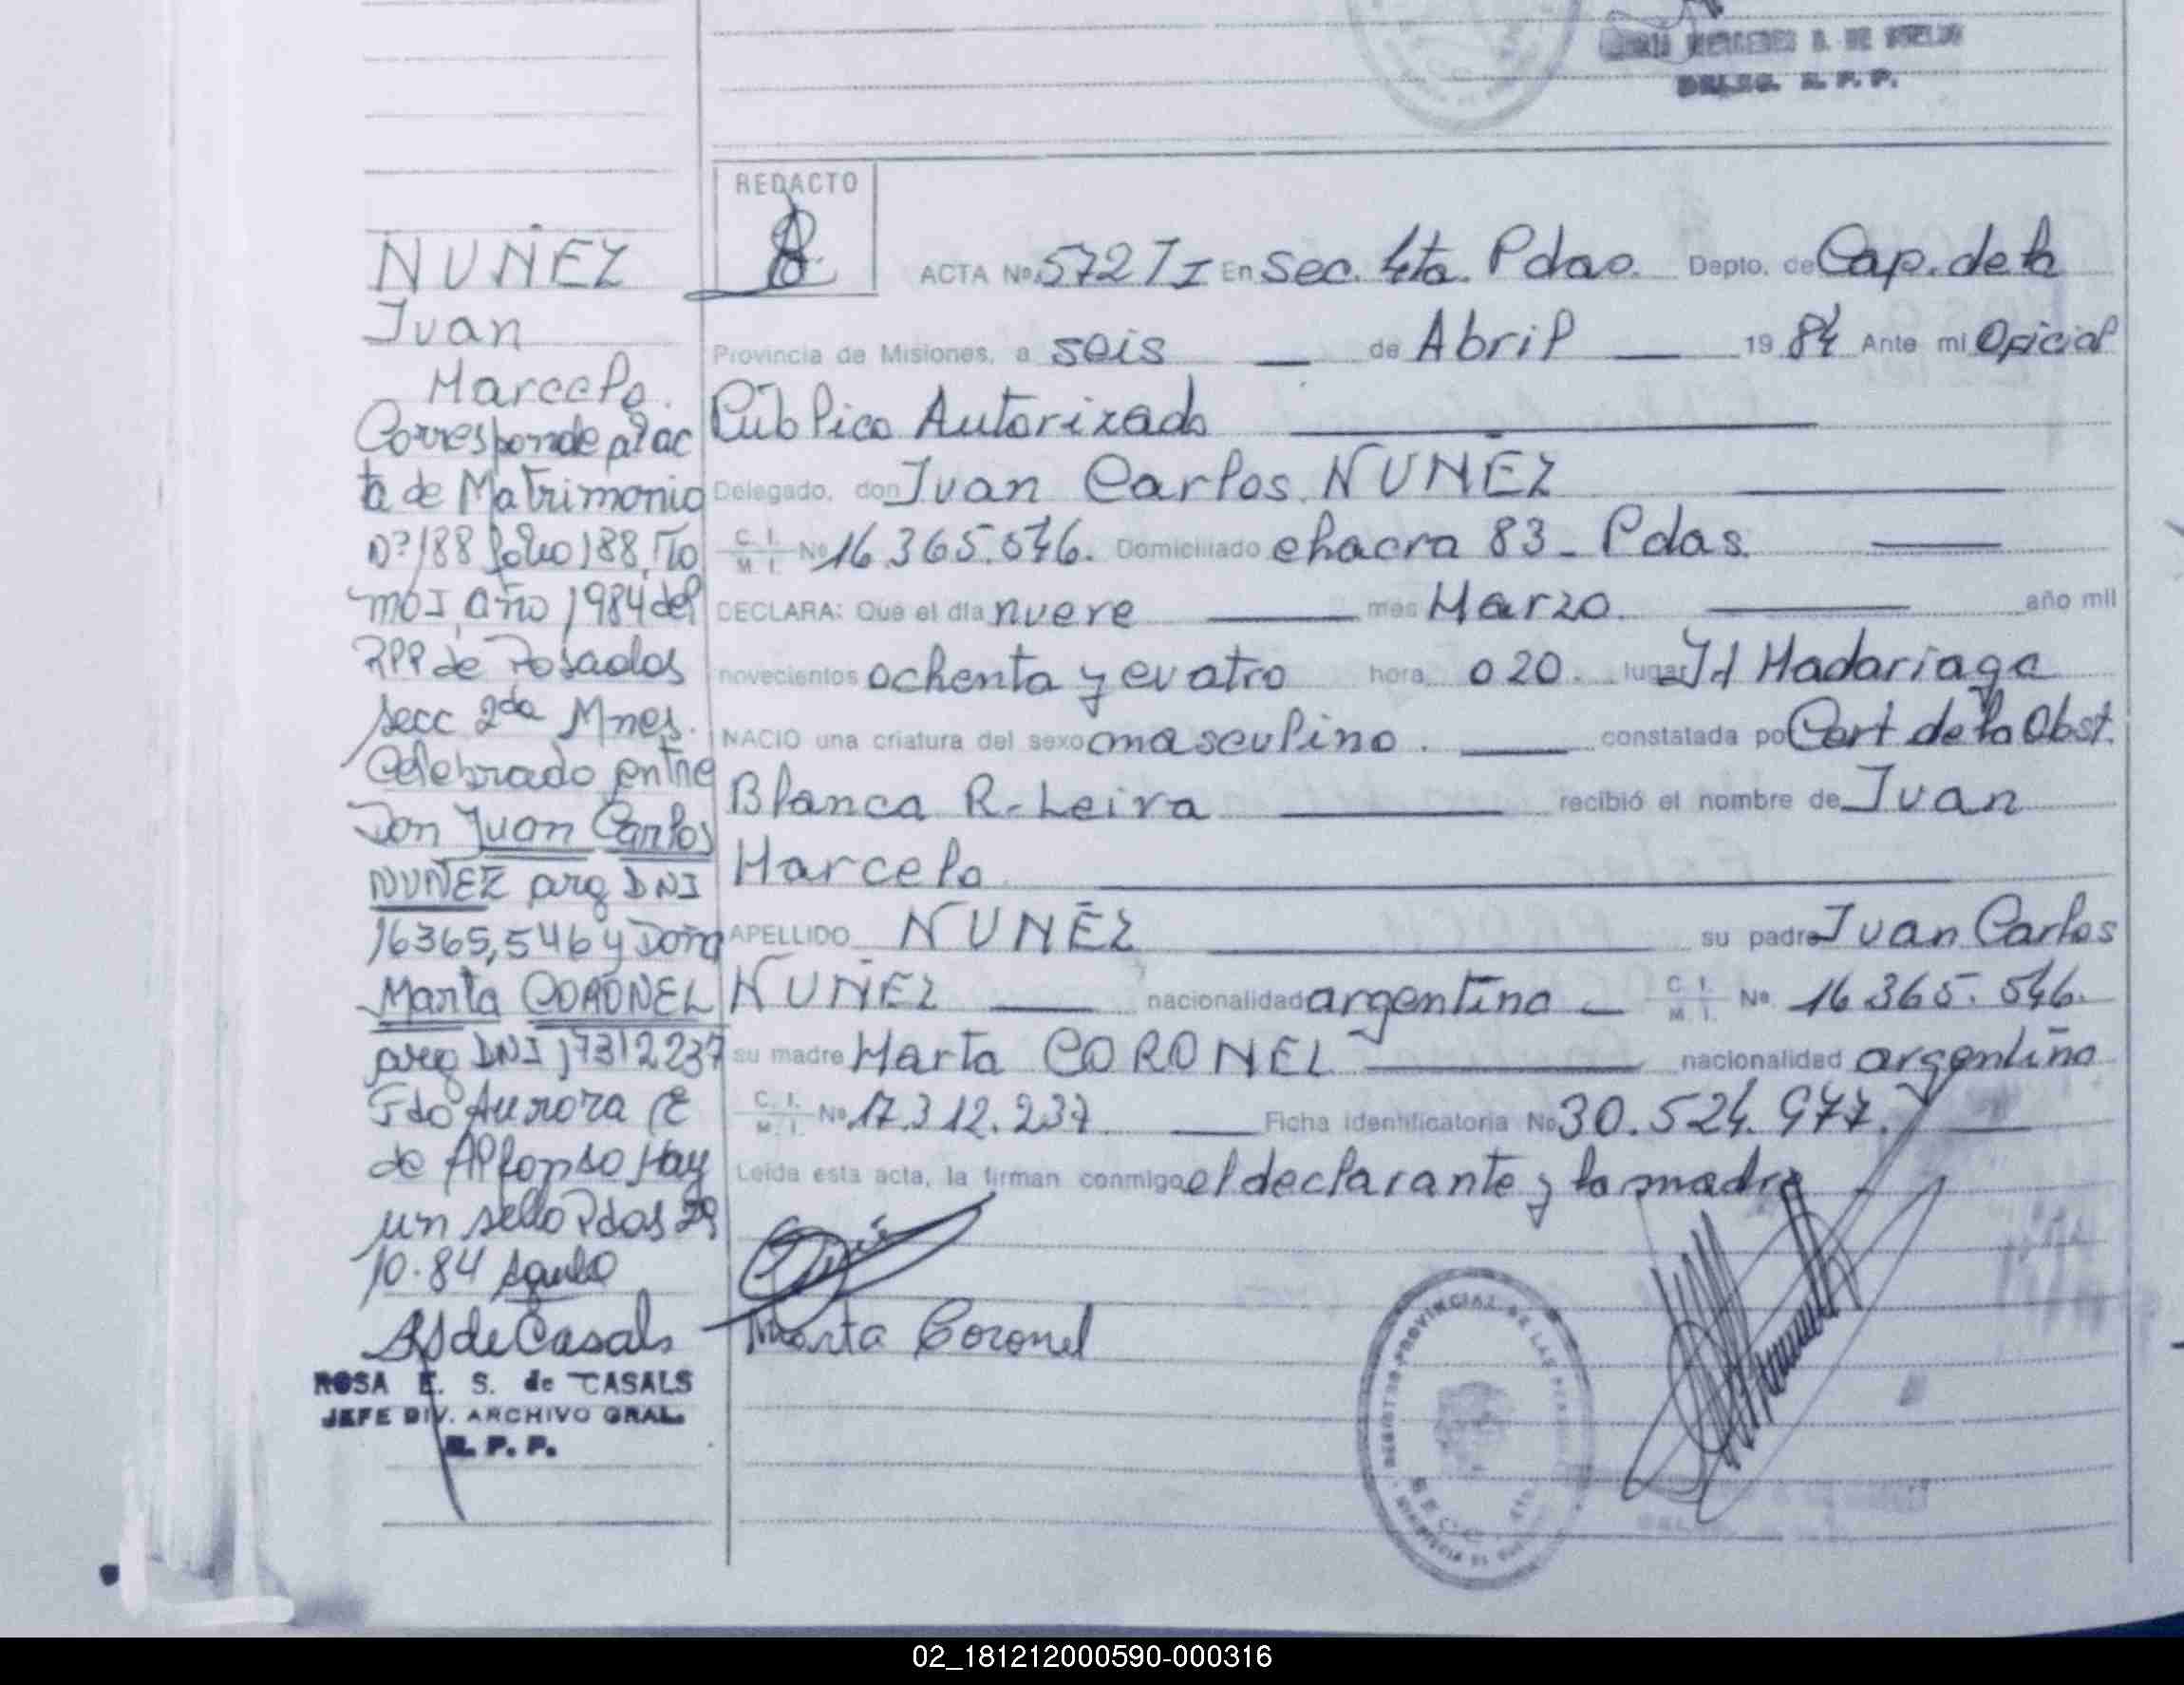 DELEG. R. P. P.
REDACTO
NUÑEZ
Juan
Marcelo.
Corresponde al ac
ta de Matrimonio
Nº 188 folio 188, To
mo I, año 1984 del
RPP de Posadas
secc 2da Mnes.
Celebrado entre
Don Juan Carlos
NUÑEZ arg DNI
16365,546 y Doña
Marta CORONEL
arg DNI 17312237
Fdo Aurora E
de Alfonso Hay
un sello Pdas 29
10.84
RS de Casals
ROSA E. S. de CASALS
JEFE DIV. ARCHIVO GRAL.
R. P. P.
ACTA Nº 572 T I En Sec. 4ta. Pdas. Depto. de Cap. de la
Provincia de Misiones, a seis — de Abril — 1984 Ante mi Oficial
Público Autorizado
Delegado, don Juan Carlos NUÑEZ
C. I. M. I. Nº 16.365.546. Domiciliado chacra 83 - Pdas.
DECLARA: Que el día nueve mes Marzo. año mil
novecientos ochenta y cuatro hora 020. lugar Hd Madariaga
NACIO una criatura del sexo masculino. constatada por Cert de la Obst.
Blanca R. Leiva recibió el nombre de Juan
Marcelo
APELLIDO NUÑEZ su padre Juan Carlos
NUÑEZ nacionalidad argentina — C. I. M. I. Nº 16.365.546.
su madre Marta CORONEL nacionalidad argentina
C. I. M. I. Nº 17.312.237 Ficha identificatoria Nº 30.524.977.
Leída esta acta, la firman conmigo el declarante y la madre
Marta Coronel
REGISTRO PROVINCIAL DE LAS PERSONAS
02_181212000590-000316